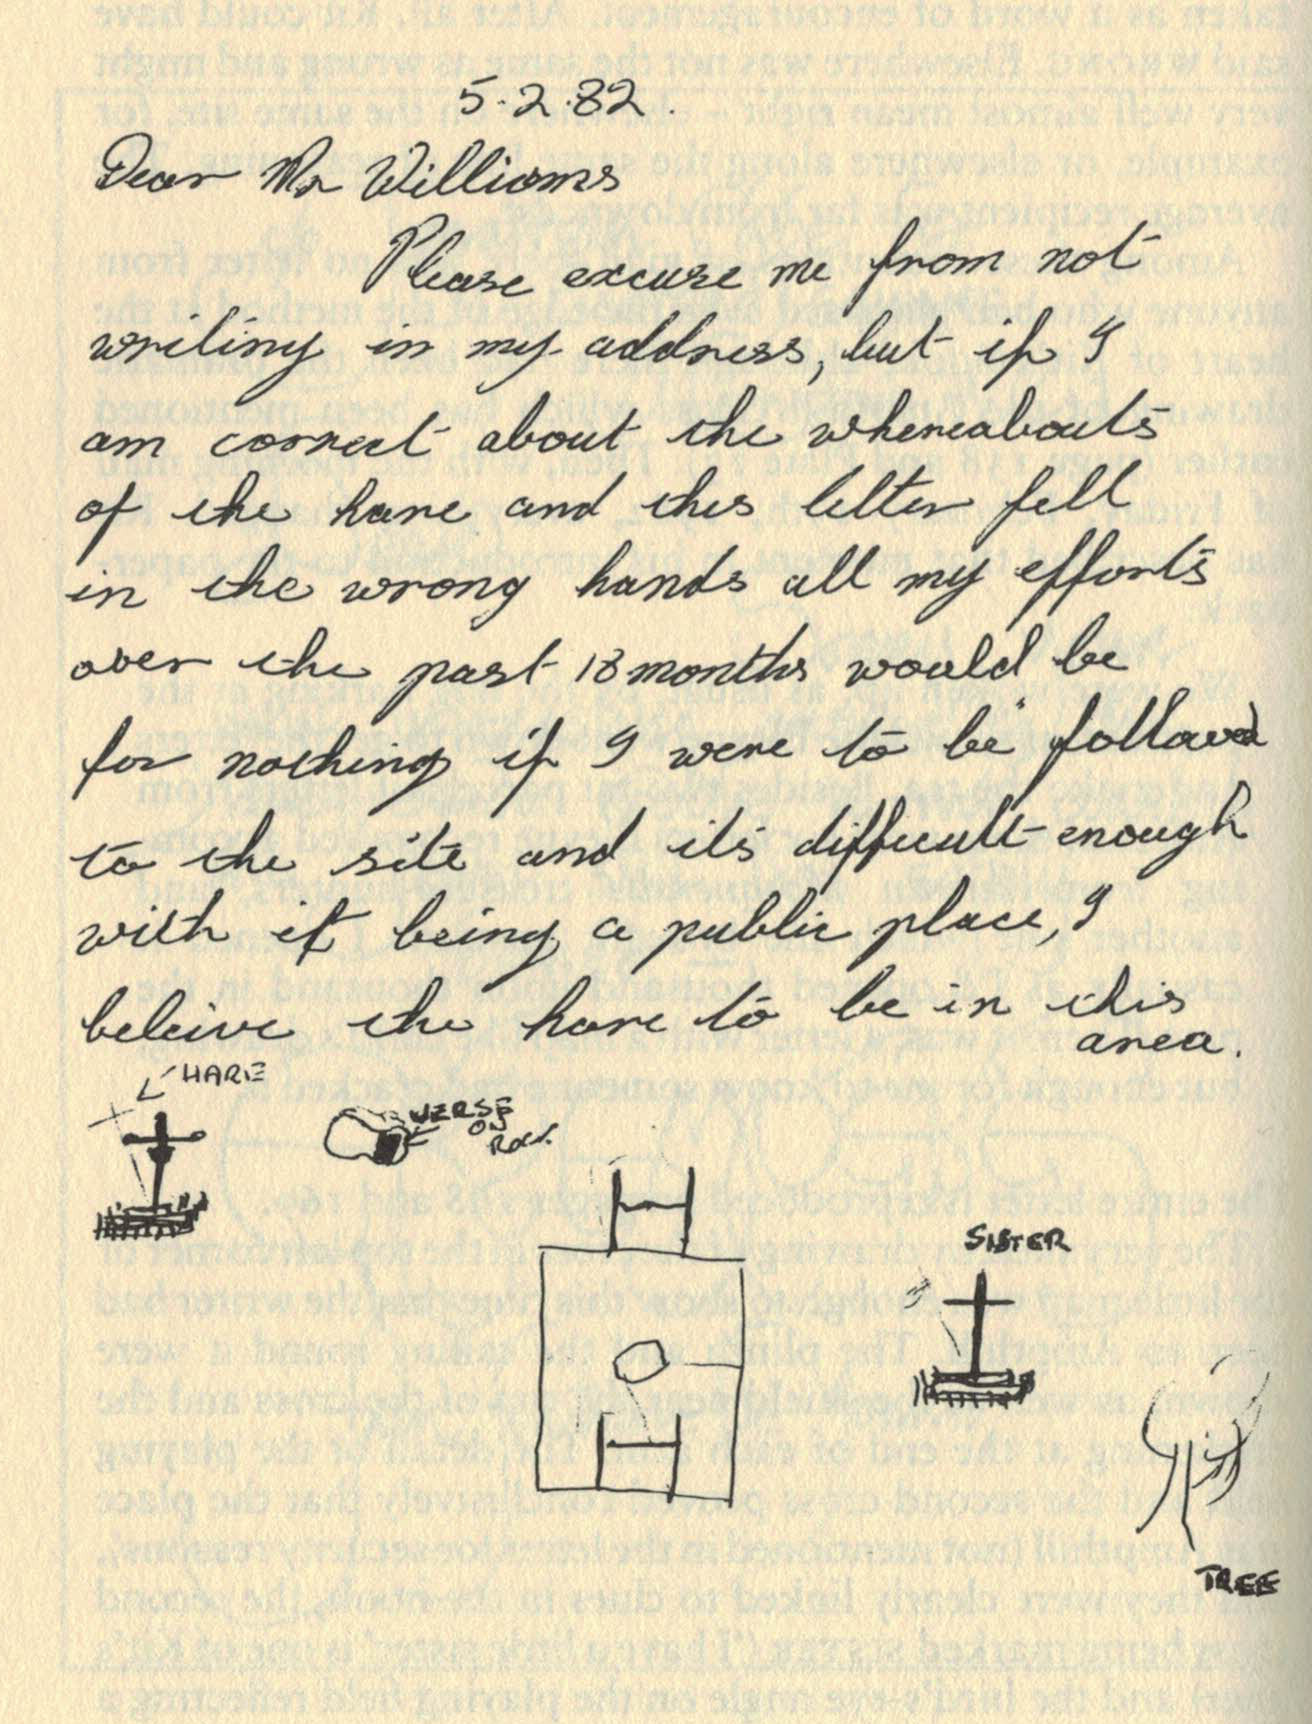 5.2.82.
Dear Mr Williams
Please excuse me from not
writing in my address, but if I
am correct about the whereabouts
of the hare and this letter fell
in the wrong hands all my efforts
over the past 18 months would be
for nothing if I were to be followed
to the site and its difficult enough
with it being a public place, I
beleive the hare to be in this
area.
HARE
VERSE
ON
ROCK
SISTER
TREE